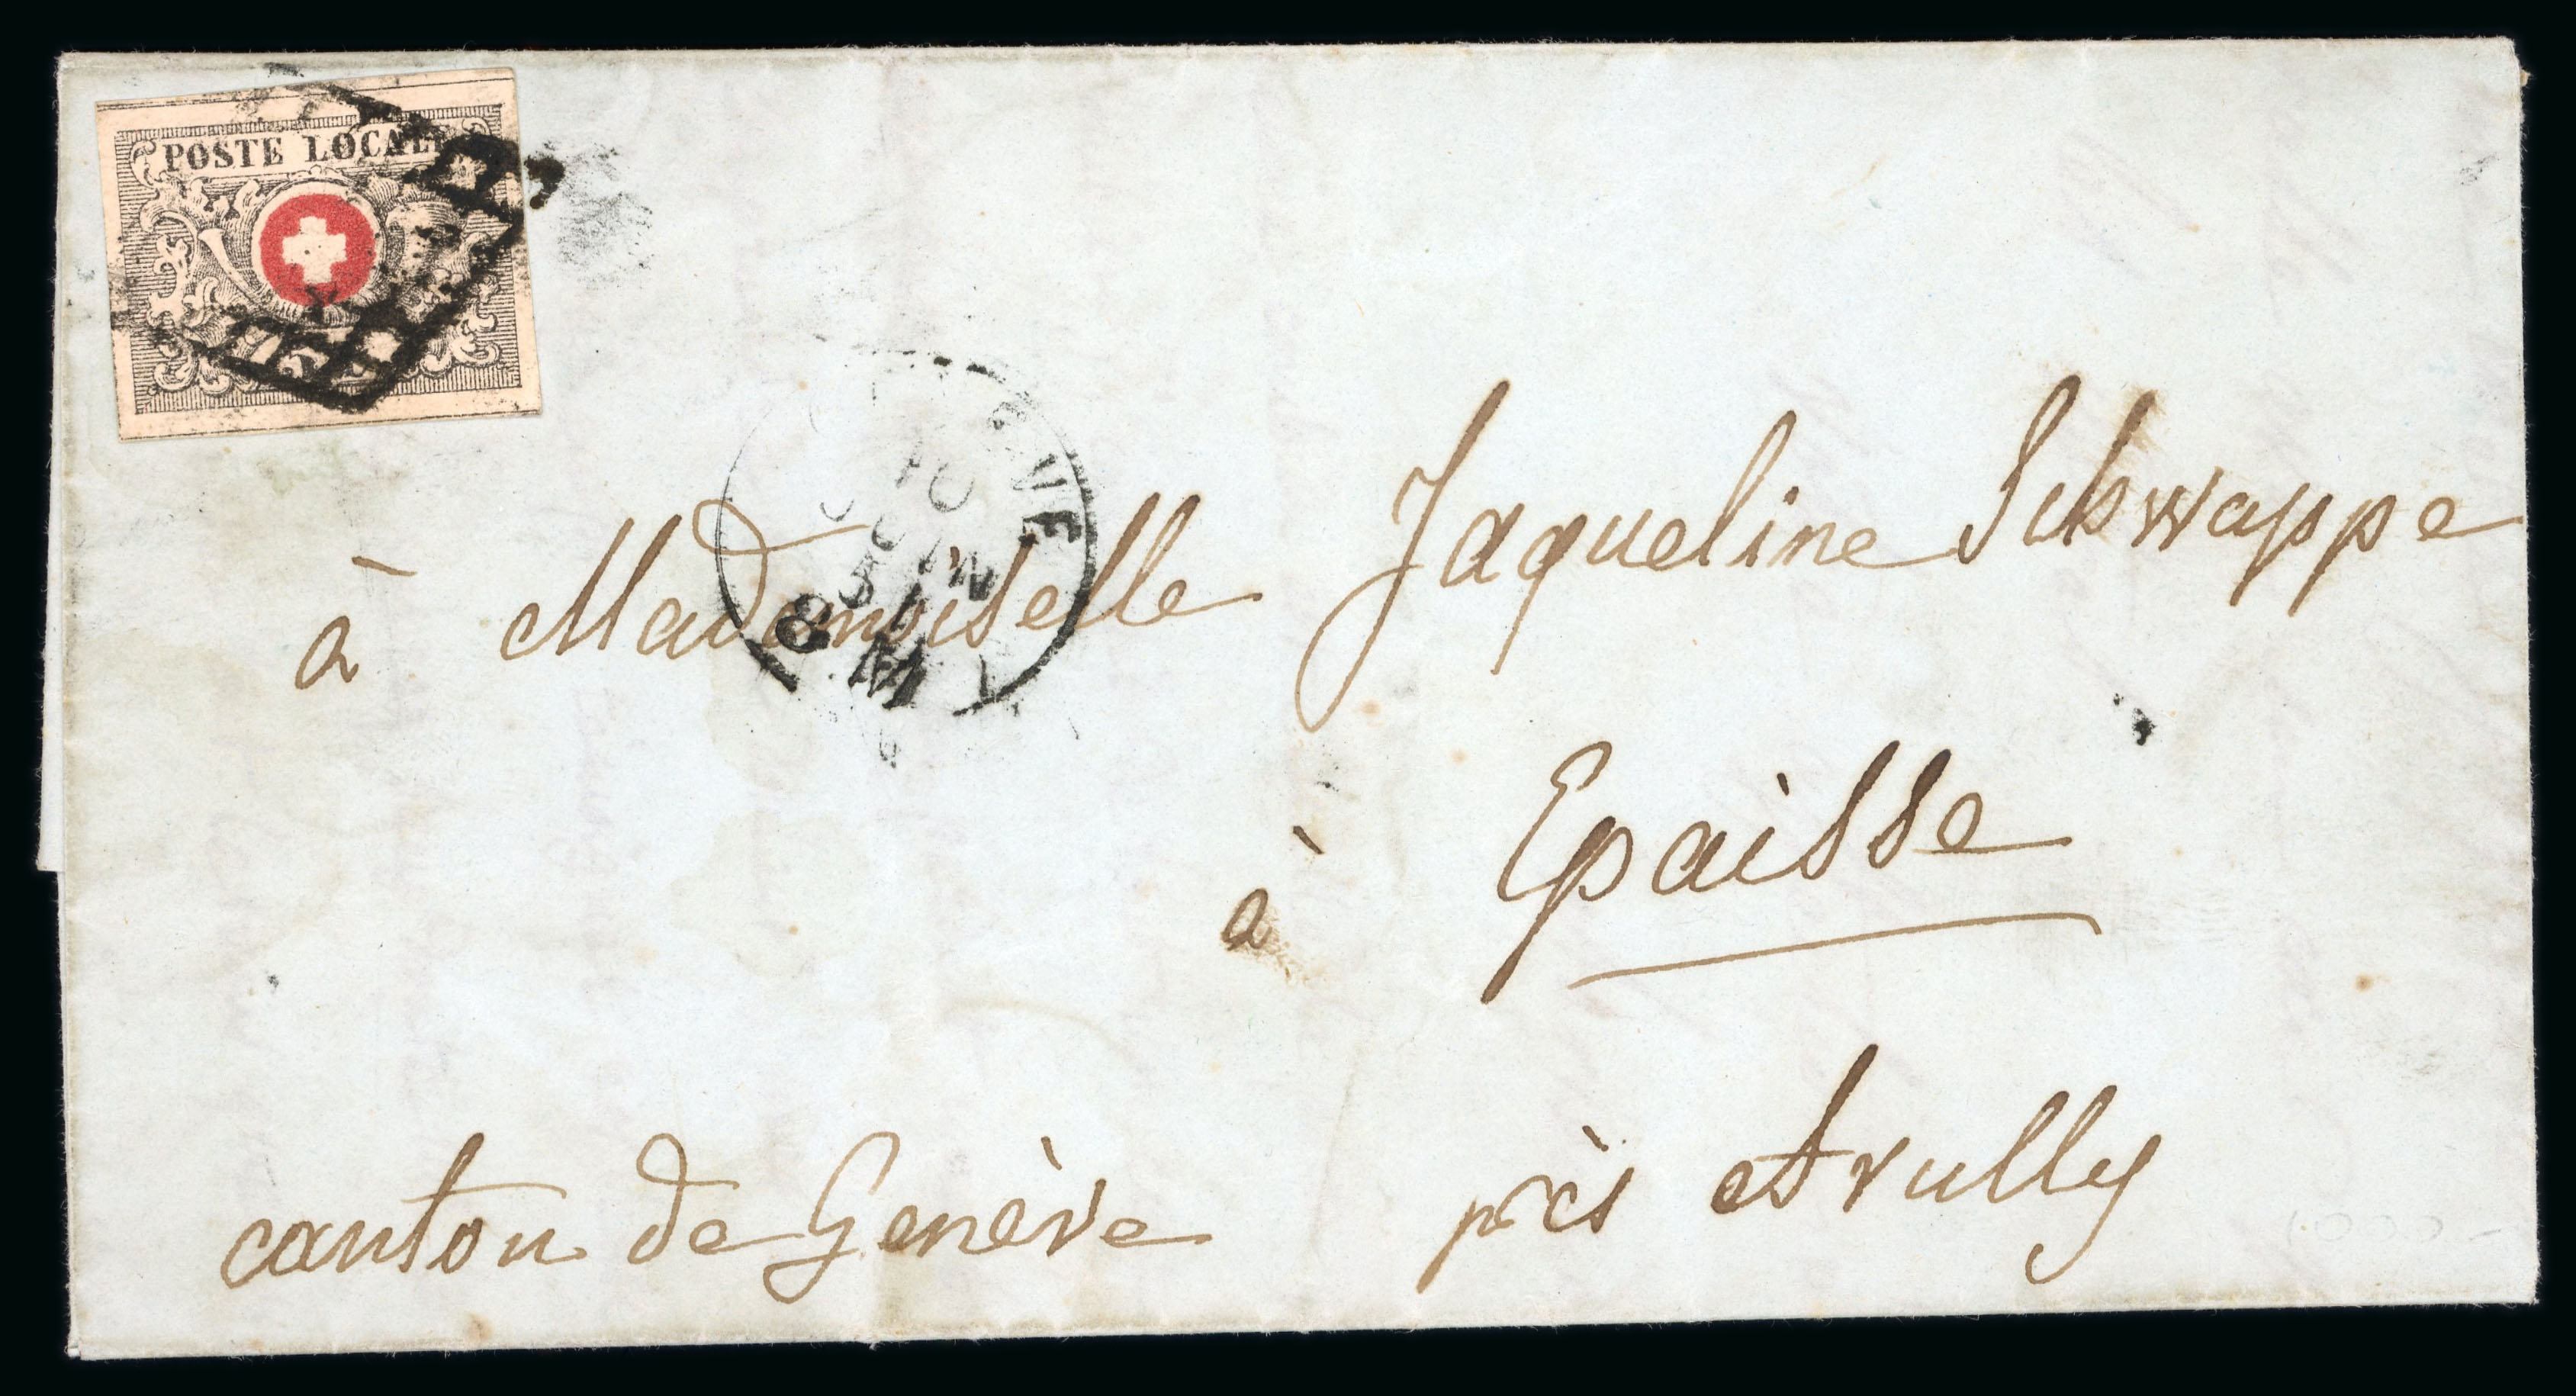 POSTE LOCALE
10
à Mademoiselle Jaqueline Schwappe
à Epaisse
près Avully
canton de Genève